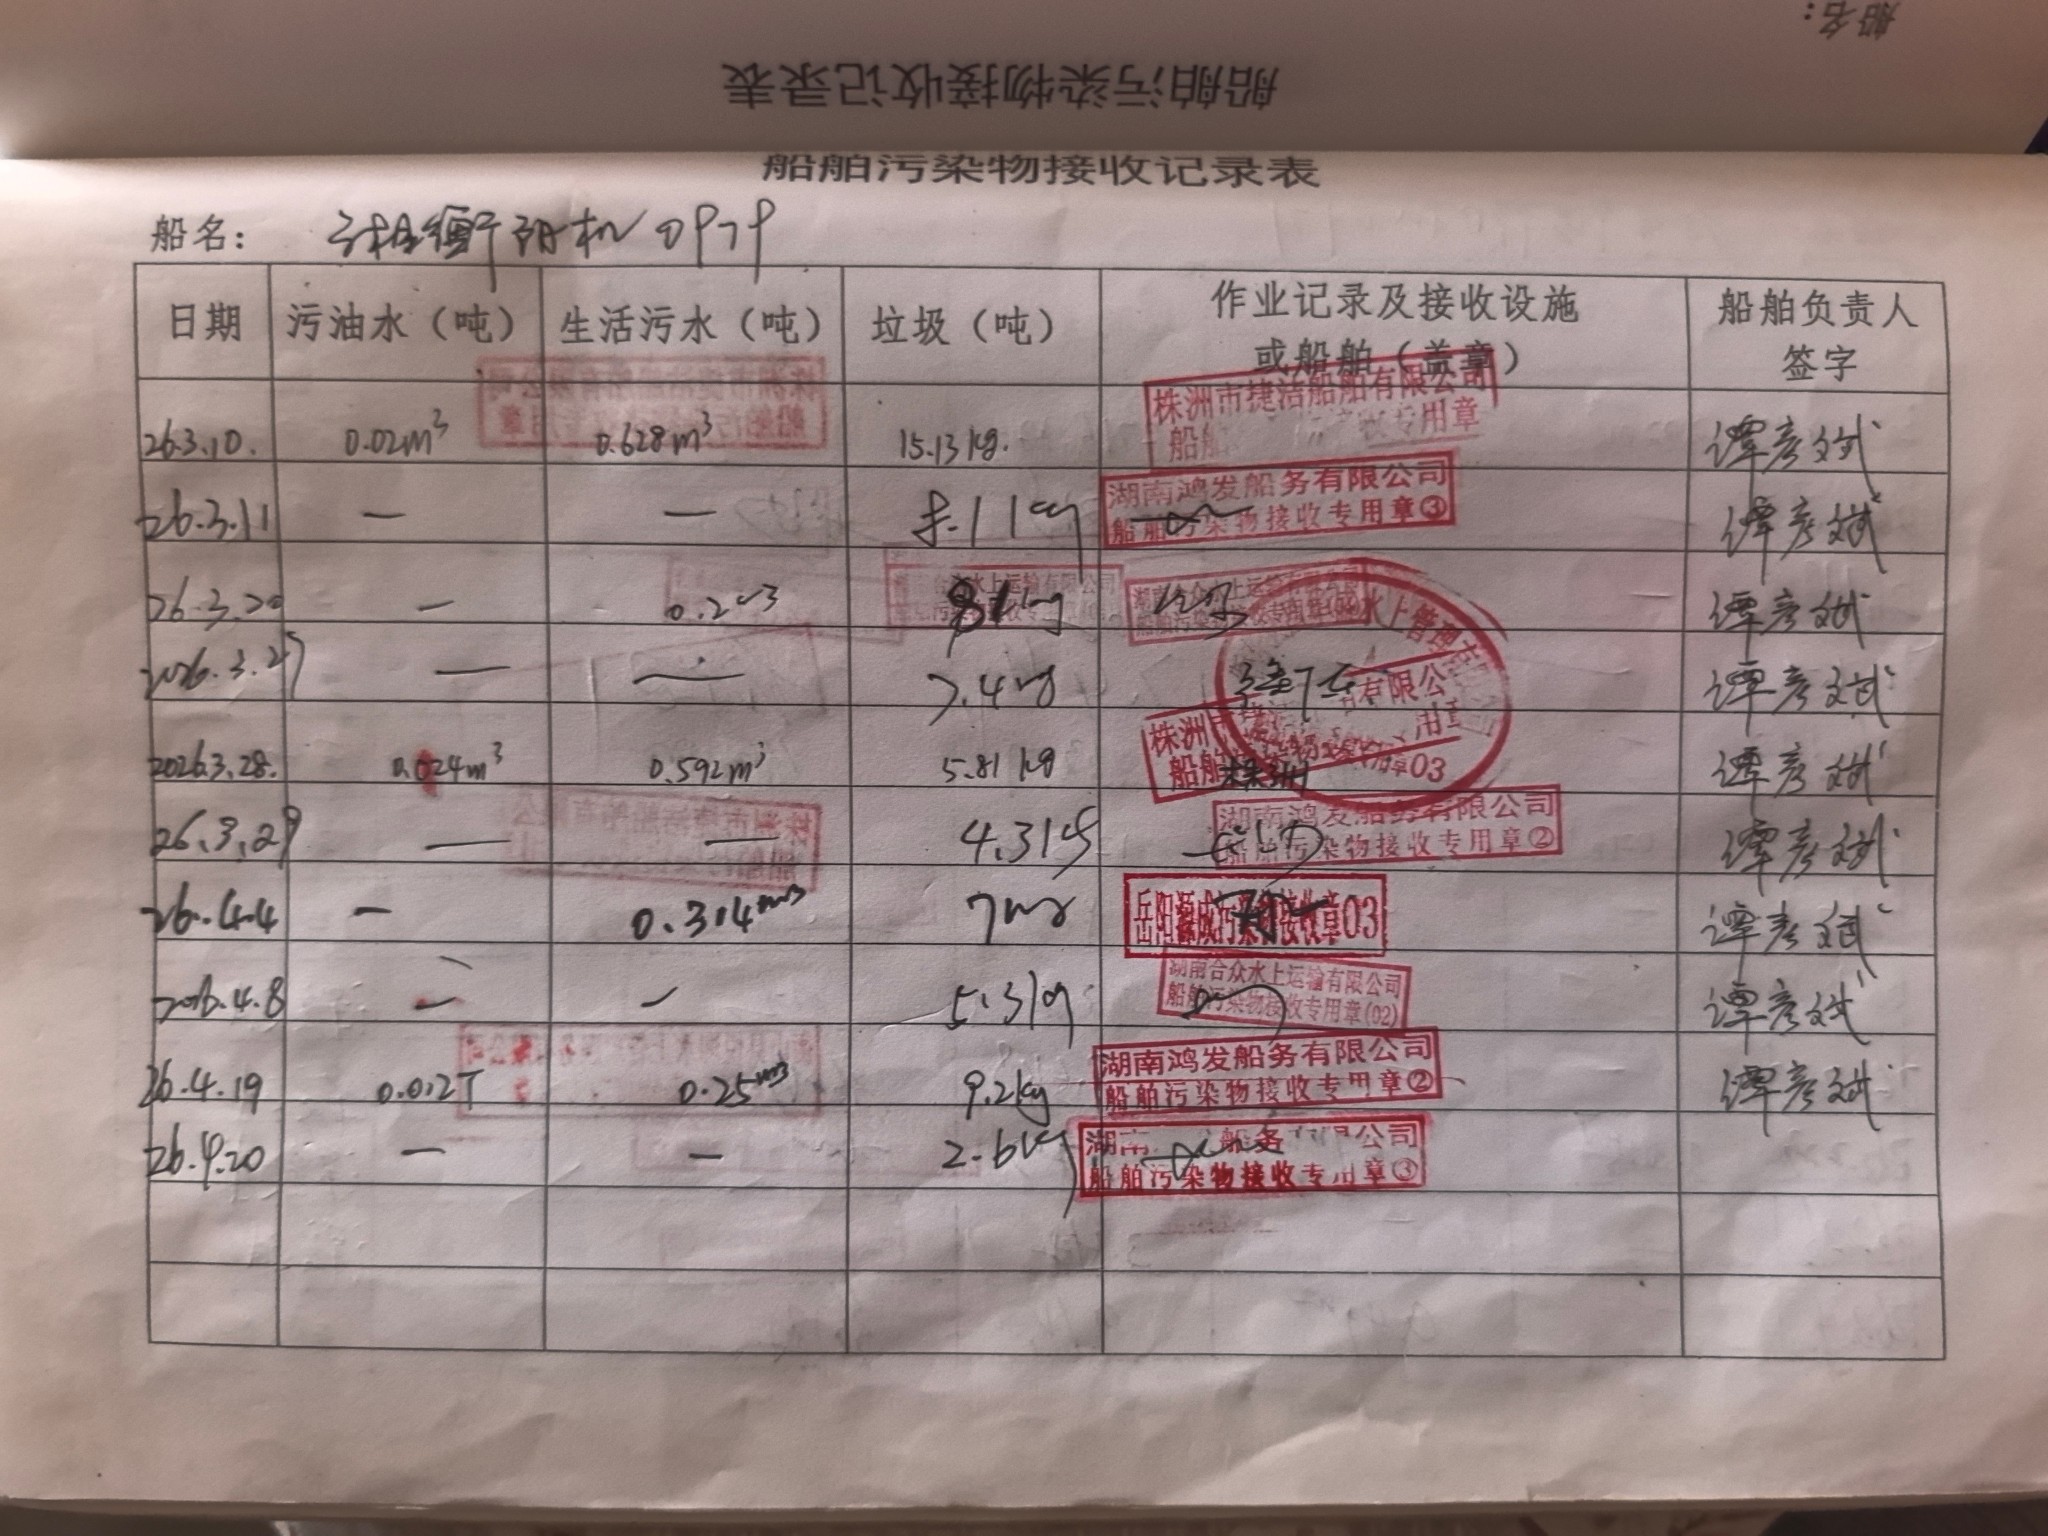 船名：
船舶污染物接收记录表
船舶污染物接收记录表
船名： 湘衡阳机
日期 污油水（吨） 生活污水（吨） 垃圾（吨） 作业记录及接收设施或船舶（盖章） 船舶负责人签字
26.3.10. 0.02m³ 0.628m³ 15.13kg. 株洲市捷洁船舶有限公司 船舶 接收专用章 谭彦斌
26.3.11 — — 湖南鸿发船务有限公司 船舶污染物接收专用章③ 谭彦斌
26.3.20 — 0.2m³ 湖南合众水上运输有限公司 谭彦斌
2026.3.27 — — 7.4kg 谭彦斌
2026.3.28. 0.024m³ 0.592m³ 5.81kg 株洲 谭彦斌
26.3.29 — — 4.31kg 湖南鸿发船务有限公司 船舶污染物接收专用章② 谭彦斌
26.4.4 — 0.314m³ 7kg 岳阳源成污染物接收章03 谭彦斌
2026.4.8 — — 5.31kg 湖南合众水上运输有限公司 船舶污染物接收专用章(02) 谭彦斌
26.4.19 0.012T 0.25m³ 9.2kg 湖南鸿发船务有限公司 船舶污染物接收专用章② 谭彦斌
26.4.20 — — 2.6kg 湖南 船务有限公司 船舶污染物接收专用章③